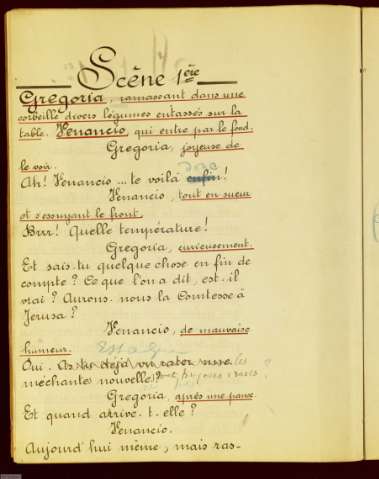 Scène 1ère
Gregoria, ramassant dans une
corbeille divers légumes entassés sur la
table. Venancio, qui entre par le fond.
Gregoria, joyeuse de
le voir.
Ah! Venancio... te voilà enfin!
Venancio, tout en sueur
et s'essuyant le front.
Brrr! Quelle température!
Gregoria, curieusement.
Et sais-tu quelque chose en fin de
compte? Ce que l'on a dit, est-il
vrai? Aurons-nous la Comtesse à
Jerusa?
Venancio, de mauvaise
humeur.
Oui. As-tu déjà vu rater les
méchantes nouvelles?
Gregoria, après une pause
Et quand arrive-t-elle?
Venancio.
Aujourd'hui même, mais ras-